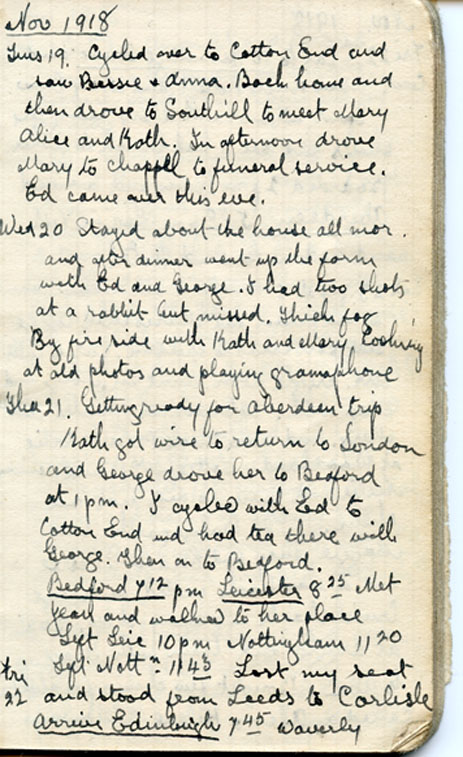 Nov 1918
Tues 19. Cycled over to Cotton End and
saw Bessie & Anna. Back home and
then drove to Southill to meet Mary
Alice and Kath. In afternoon drove
Mary to Chappell to funeral service.
Ed came over this eve.
Wed 20 Stayed about the house all mor.
and after dinner went up the farm
with Ed and George. I had two shots
at a rabbit but missed. Thick fog
By fire side with Kath and Mary. Looking
at old photos and playing gramaphone
Thu 21. Getting ready for Aberdeen trip
Kath got wire to return to London
and George drove her to Bedford
at 1 pm. I cycled with Ed to
Cotton End and had tea there with
George. Then on to Bedford.
Bedford 7 12 pm Leicester 8 25 Met
Jean and walked to her place
Left Leic 10 pm Nottingham 11 20
Fri Left Nott m 11 43 Lost my seat
22 and stood from Leeds to Carlisle
Arrive Edinburgh 7 45 Waverly